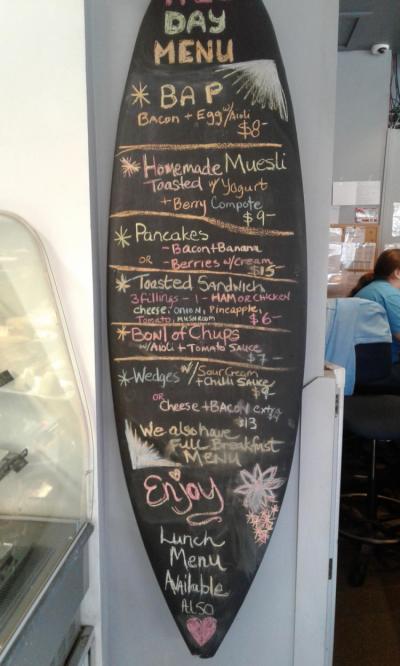 ALL
DAY
MENU
BAP
BACON + EGG w/ Aioli
$8-
Homemade Muesli
Toasted w/ Yogurt
+ Berry Compote
$9-
Pancakes
- Bacon + Banana
OR - Berries w/ Cream
$15-
Toasted Sandwich
3 fillings - 1 - HAM OR CHICKEN
cheese, ONION, Pineapple,
Tomato, MUSHROOM $6-
Bowl of Chups
w/ Aioli + Tomato SAUCE
$7-
Wedges w/ Sour Cream
+ Chilli SAUCE
$9
OR
cheese + BACON extra
$13
We also have
Full Breakfast
MENU
Enjoy
Lunch
Menu
Available
Also